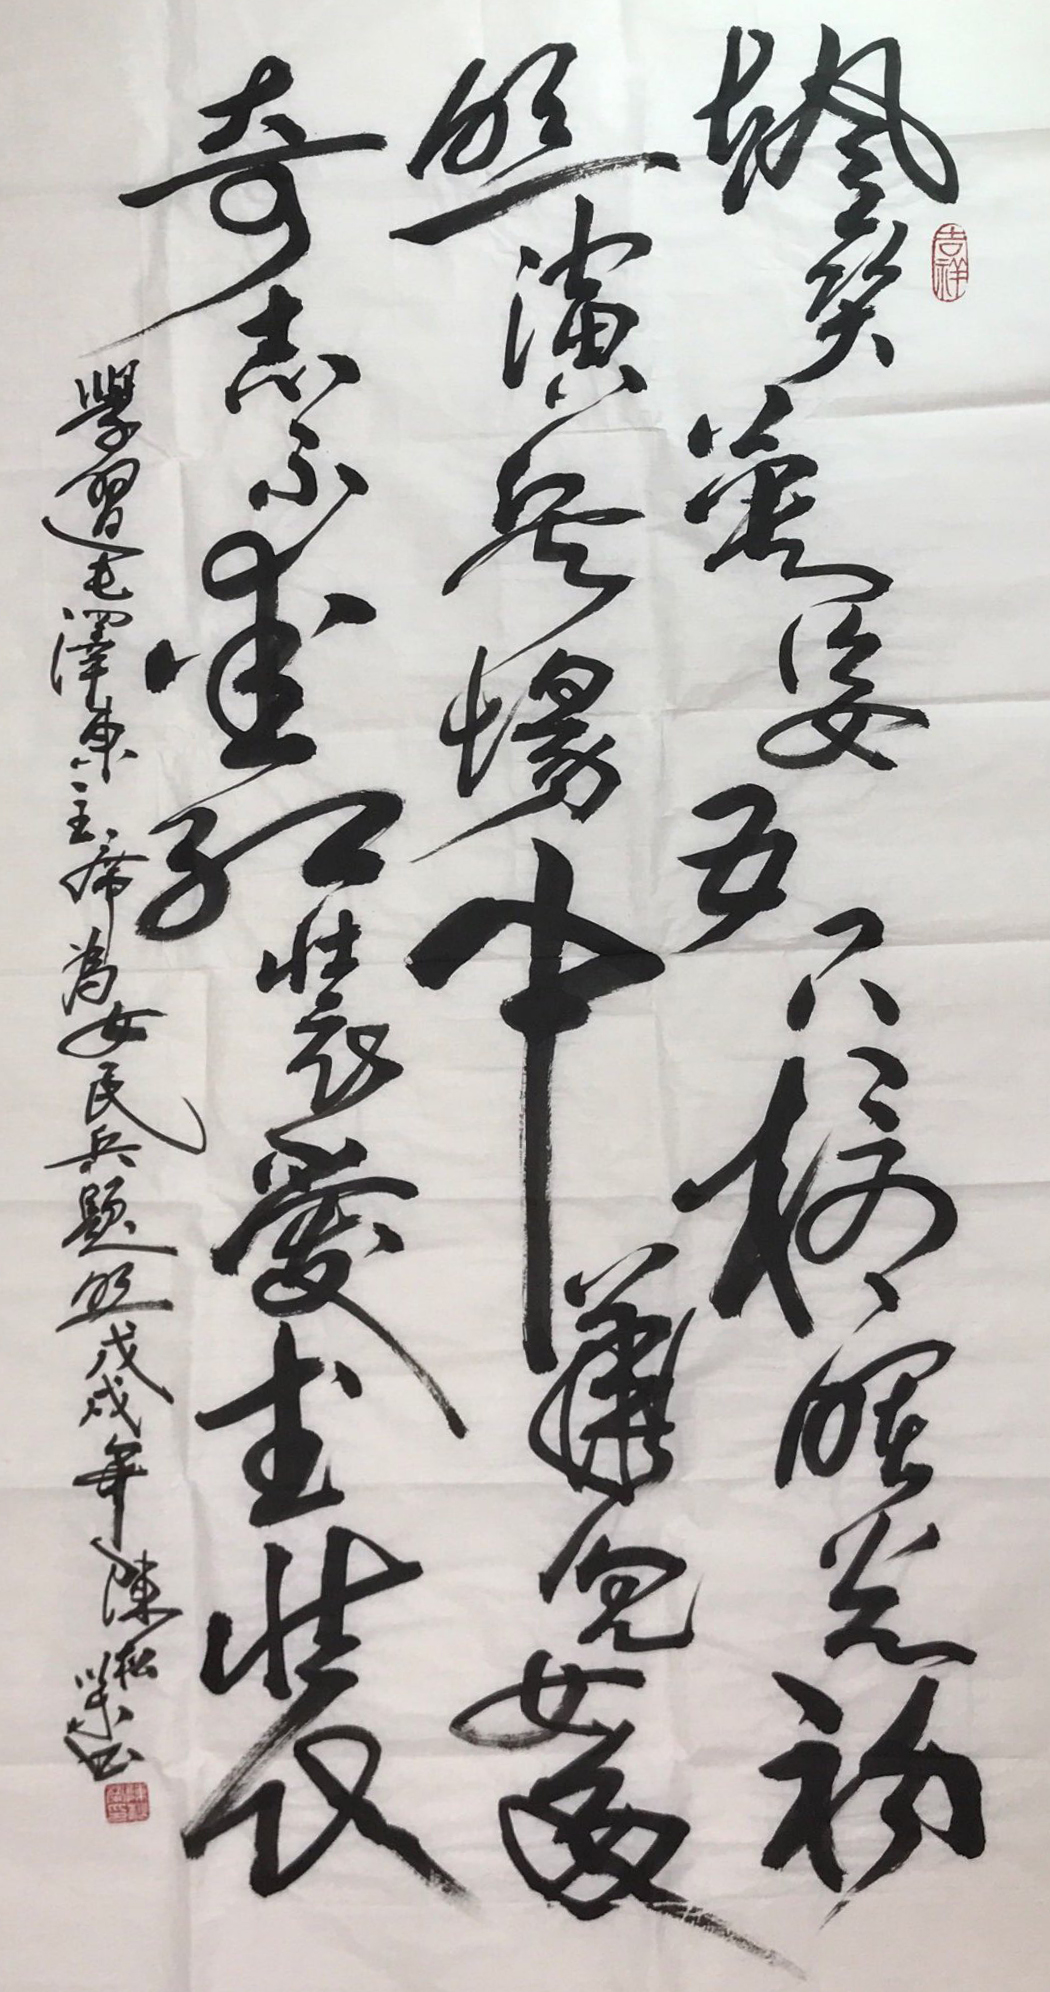 吉祥
颯爽英姿五尺槍曙光初
照演兵場中華兒女多
奇志不愛紅裝愛武裝
學習毛澤東主席為女民兵題照戊戌年陳松書